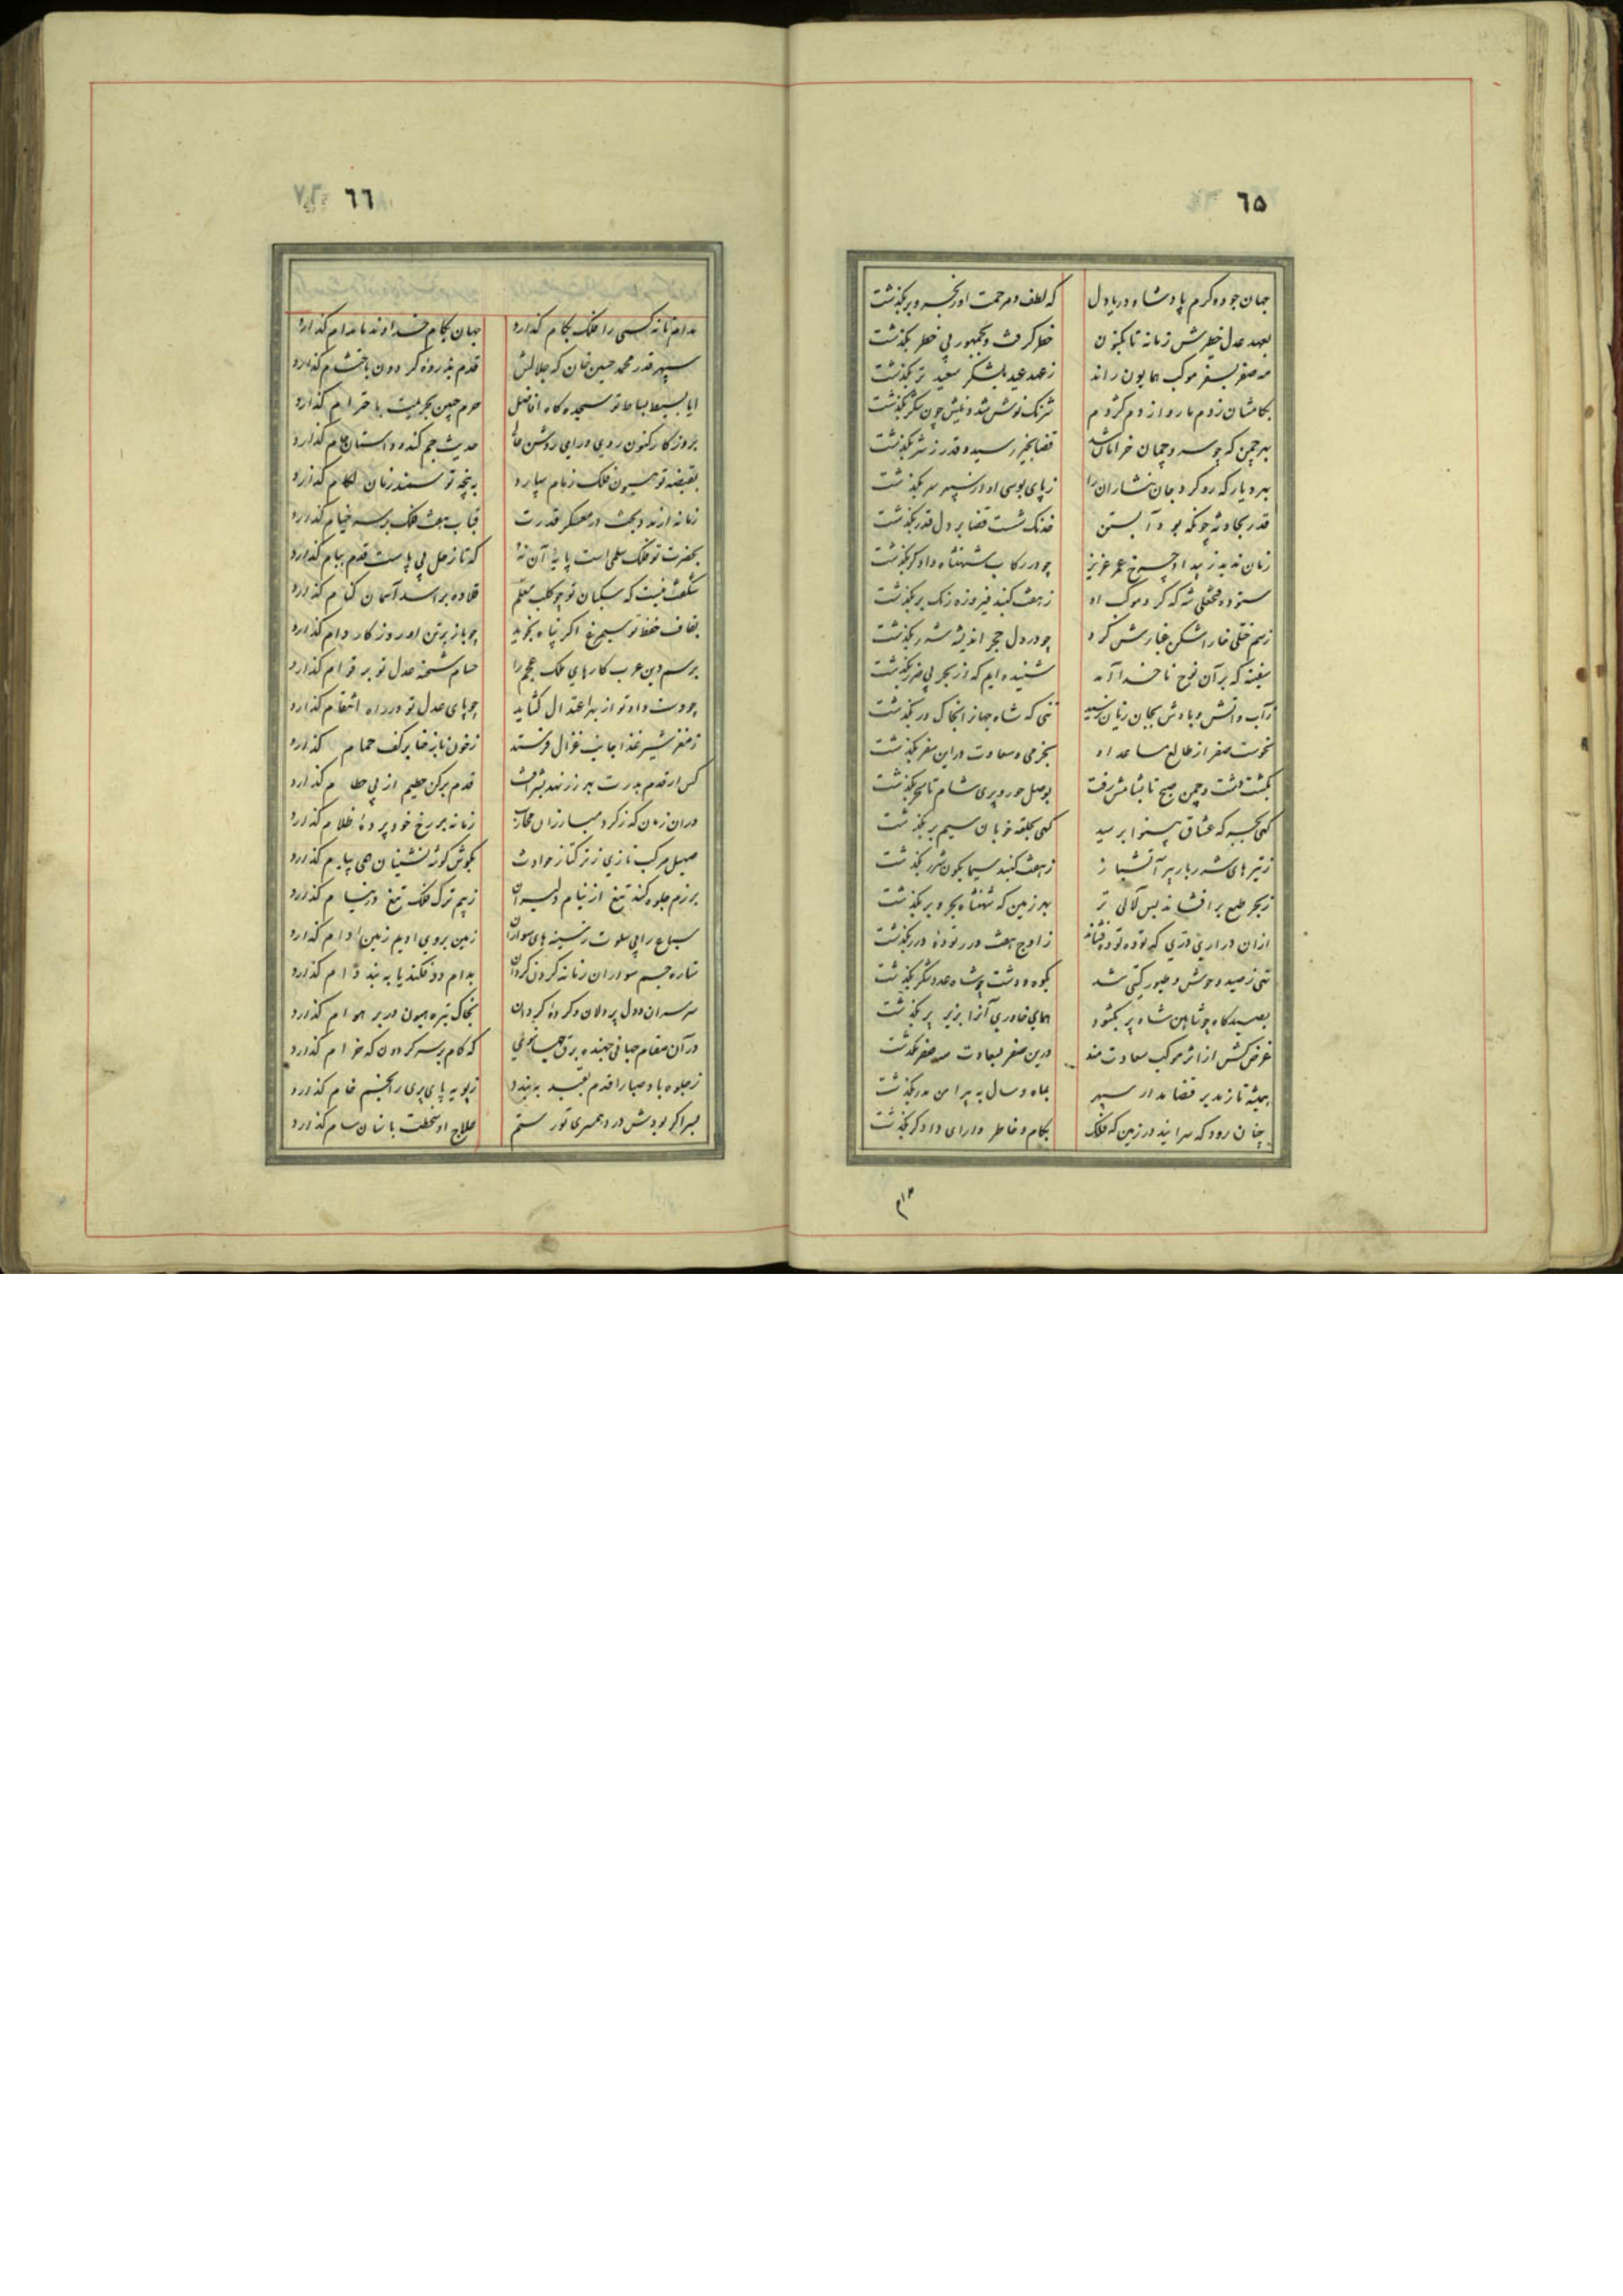 ٦۵
جهان جود و کرم پادشاه دریا دل که لطف و مرحمت او ز بحر و بر بگذشت
بعهد عدل خطیرش زمانه تا بکنون خطر گرفت و بجمهور بی خطر بگذشت
مه صفر بسفر موکب همایون راند ز عهد عید بلشکر سعید تر بگذشت
بکامشان ز دم مار و از دم کژدم شرنک نوش شد و نیش چون شکر بگذشت
بهر چمن که چو سرو چمان خرامان شد قضا بخیر رسید و قدر ز شر بگذشت
بهر دیار که رو کرد جان نثاران را ز پای بوسی او در سپهر سر بگذشت
قدر بجادثه چونکه بود آبستن خدنک شست قضا بر دل قدر بگذشت
زمان ندید ز بیداد چرخ عمر عزیز چو در رکاب شهنشاه دادگر بگذشت
ستوده محفلی شه که گرد موکب او ز هفت کنبد فیروزه رنک بر بگذشت
ز سم ختلی خارا شکن غبارش کرد چو در دل حجر اندیشه شرر بگذشت
سفینه که بر آن نوح ناخدا آمد شنیده ایم که از بحر بی ضرر بگذشت
ز آب و آتش و بادش بجان زیان نرسید تنی که شاه جهان را بخاک در بگذشت
نحوست صفر از طالع مساعد او بخرمی و سعادت در این سفر بگذشت
بگشت دشت و چمن صبح تا بشامش رفت بوصل حور و پری شام تا سحر بگذشت
کهی بجبهه که عشاق بینوا برسید کهی بحلقه خوبان سیم بر بگذشت
ز تیرهای شرر بار ببر آتشبار ز هفت کنبد سیمابکون شرر بگذشت
ز بحر طبع بر افشاند بس لآلی تر بهر زمین که شهنشاه بحر و بر بگذشت
از آن دراری دری که توده توده فشاند ز اوج هفت در توده در بگذشت
تهی ز صید وحوش و طیور کیتی شد بکوه و دشت چو شاه عدو شکر بگذشت
بصیدکاه چو شاهین شاه پر بگشود همای خاوری آنرا بزیر پر بگذشت
غرض کش از اثر موکب سعادت مند درین صفر بسعادت مه صفر بگذشت
همیشه تا ز تدبیر قضا مدار سپهر بماه و سال به پیرامن مدر بگذشت
چنان رود که سرایند در زمین که فلک بکام و خاطر دارای دادگر بگذشت
٦٦
مدام تا نه کسی را فلک بکام گذارد جهان بکام خداوند ما مدام گذارد
سپهر قدر محمد حسین خان که جلالش قدم بذروهٔ گردون باحتشام گذارد
ایا بسیط بساط تو سجده کاه افاضل حرم جبین بحریمت باحترام گذارد
بروزکار کنون روی و رای روشن حالی حدیث جم کند و داستان جام گذارد
بقبضه تو هیون فلک زمام سپارد به پنجه تو سمند زمان لکام گذارد
زمانه از مدد بخت در معسکر قدرت قباب هفت فلک بر سر خیام گذارد
بحضرت تو فلک سلمی است پایهٔ آن نه که تا زحل پی پاست قدم ببام گذارد
شگفت نیست که سکبان تو چو کلب معلم قلاده بر اسد آسمان کنام گذارد
بقاف حفظ تو سیمرغ اکر پناه بجوید چو باز برتن او روزکار دام گذارد
برسم دین عرب کارهای ملک عجم را حسام شحنه عدل تو بر قوام گذارد
چو دست داد تو از بهر اعتدال کشاید چو پای عدل تو در راه انتقام گذارد
ز مغز شیر غذا جانب غزال فرستد ز خون باز حنا بر کف حمام گذارد
کس ار قدم بدرت بهر زر نهد بشرافت قدم برکن حطیم از پی حطام گذارد
در آن زمان که ز کرد مبارزان محارب زمانه بر رخ خود پردهٔ ظلام گذارد
صهیل مرکب تازی ز ترکتاز حوادث بگوش گوشه نشینان همی پیام گذارد
برزم جلوه کند تیغ از نیام دلیران ز بیم ترک فلک تیغ در نیام گذارد
سباع را پی سلوت ز سینه های سواران زمین بروی ادیم زمین ادام گذارد
ستاره جسم سواران زمانه کردن کردان بدام در فکند یا به بند دام گذارد
سر سران و دل پر دلان و کردهٔ کردان بخاک تیره هیون در بر هوام گذارد
در آن مقام جهانی جهنده برق جهانسوزی که کام بر سر کردون که خرام گذارد
ز جلوه باد صبا را قدم بقید ببندد ز پویه پای پری را بچشم خام گذارد
صبر اکر بودش در د همسری تو رستم علاج او سخطت با سنان سام گذارد